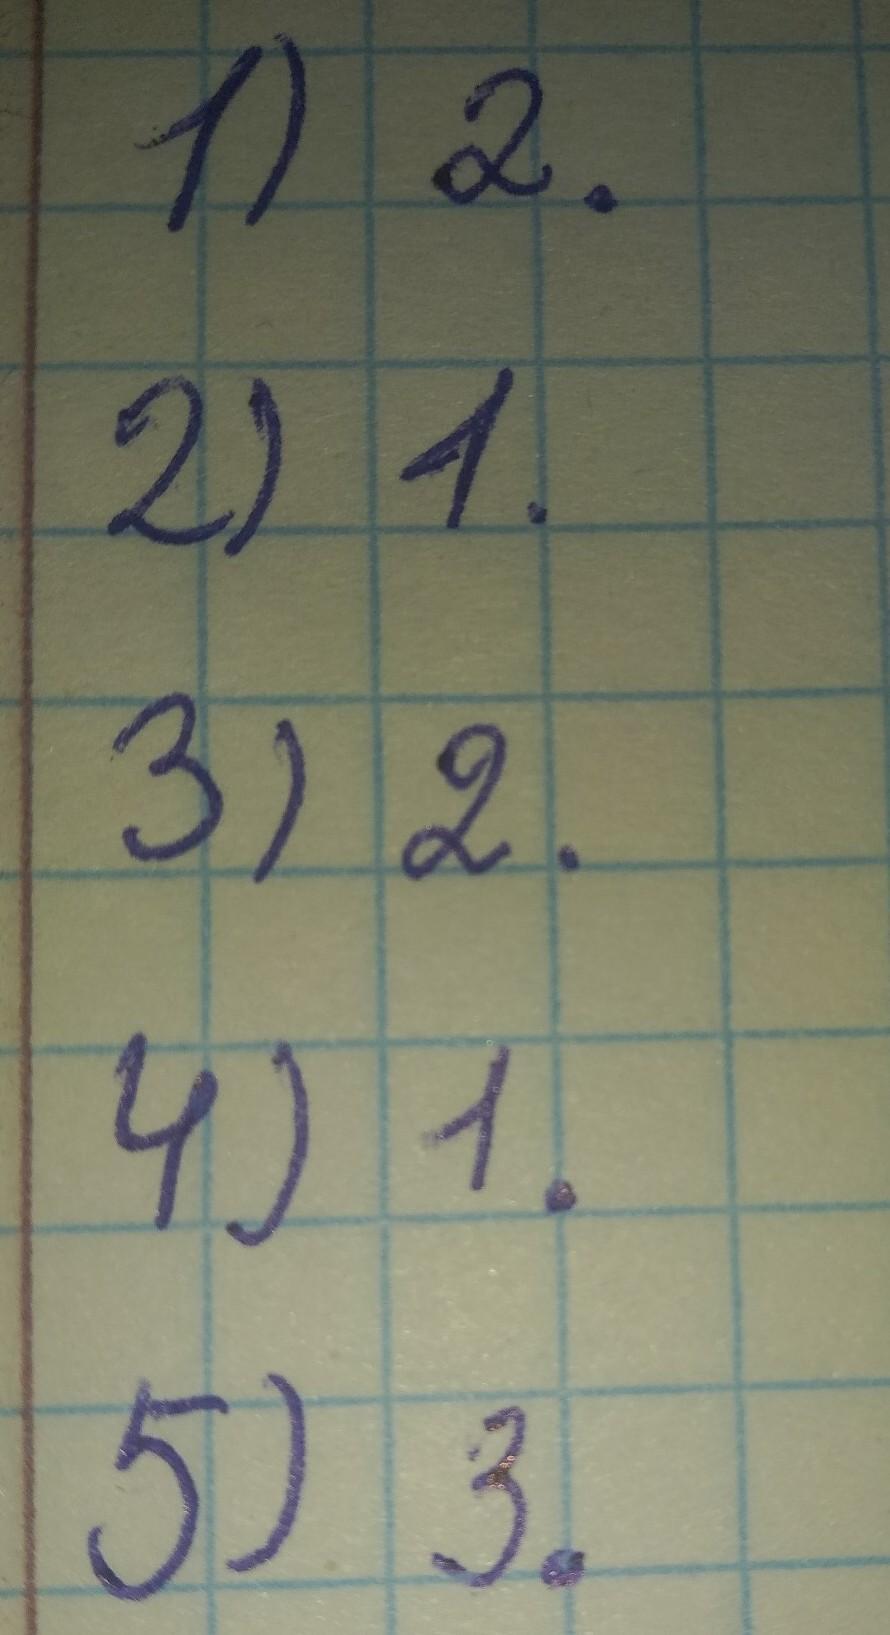 1) 2.
2) 1.
3) 2.
4) 1.
5) 3.